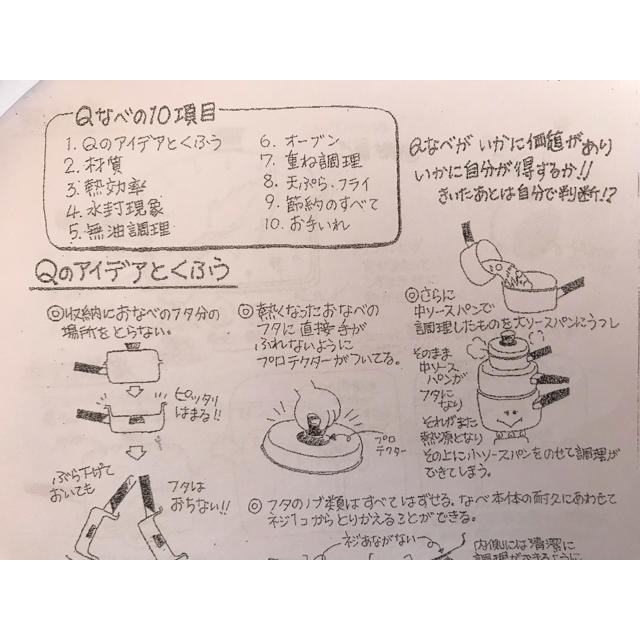 Qなべの10項目
1. Qのアイデアとくふう
2. 材質
3. 熱効率
4. 水封現象
5. 無油調理
6. オーブン
7. 重ね調理
8. 天ぷら・フライ
9. 節約のすべて
10. お手いれ
Qなべが いかに価値があり
いかに自分が得するか!!
きいたあとは自分で判断!?
Qのアイデアとくふう
◎収納におなべのフタ分の
場所をとらない。
ピッタリ
はまる!!
ぶら下げて
おいても
フタは
おちない!!
◎熱くなったおなべの
フタに直接手が
ふれないように
プロテクターがついてる。
プロ
テクター
◎さらに
中ソースパンで
調理したものを大ソースパンにうつし
そのまま
中ソース
パンが
フタに
なり
それがまた
熱源となり
その上に小ソースパンをのせて調理が
できてしまう。
◎フタのノブ類はすべてはずせる。なべ本体の耐久にあわせて
ネジ1コからとりかえることができる。
ネジあながない
内側には清潔に
調理ができるように